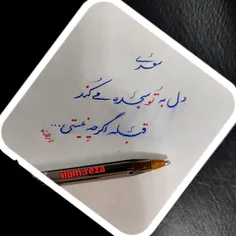 سعدی
دل به تو سجده می‌کند
قبله اگرچه نیستی...
ilam.reza